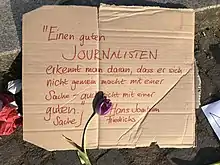 "Einen guten
JOURNALISTEN
erkennt man daran, dass er sich
nicht gemein macht mit einer
Sache - auch nicht mit einer
guten
Sache
Hans Joachim
Friedrichs